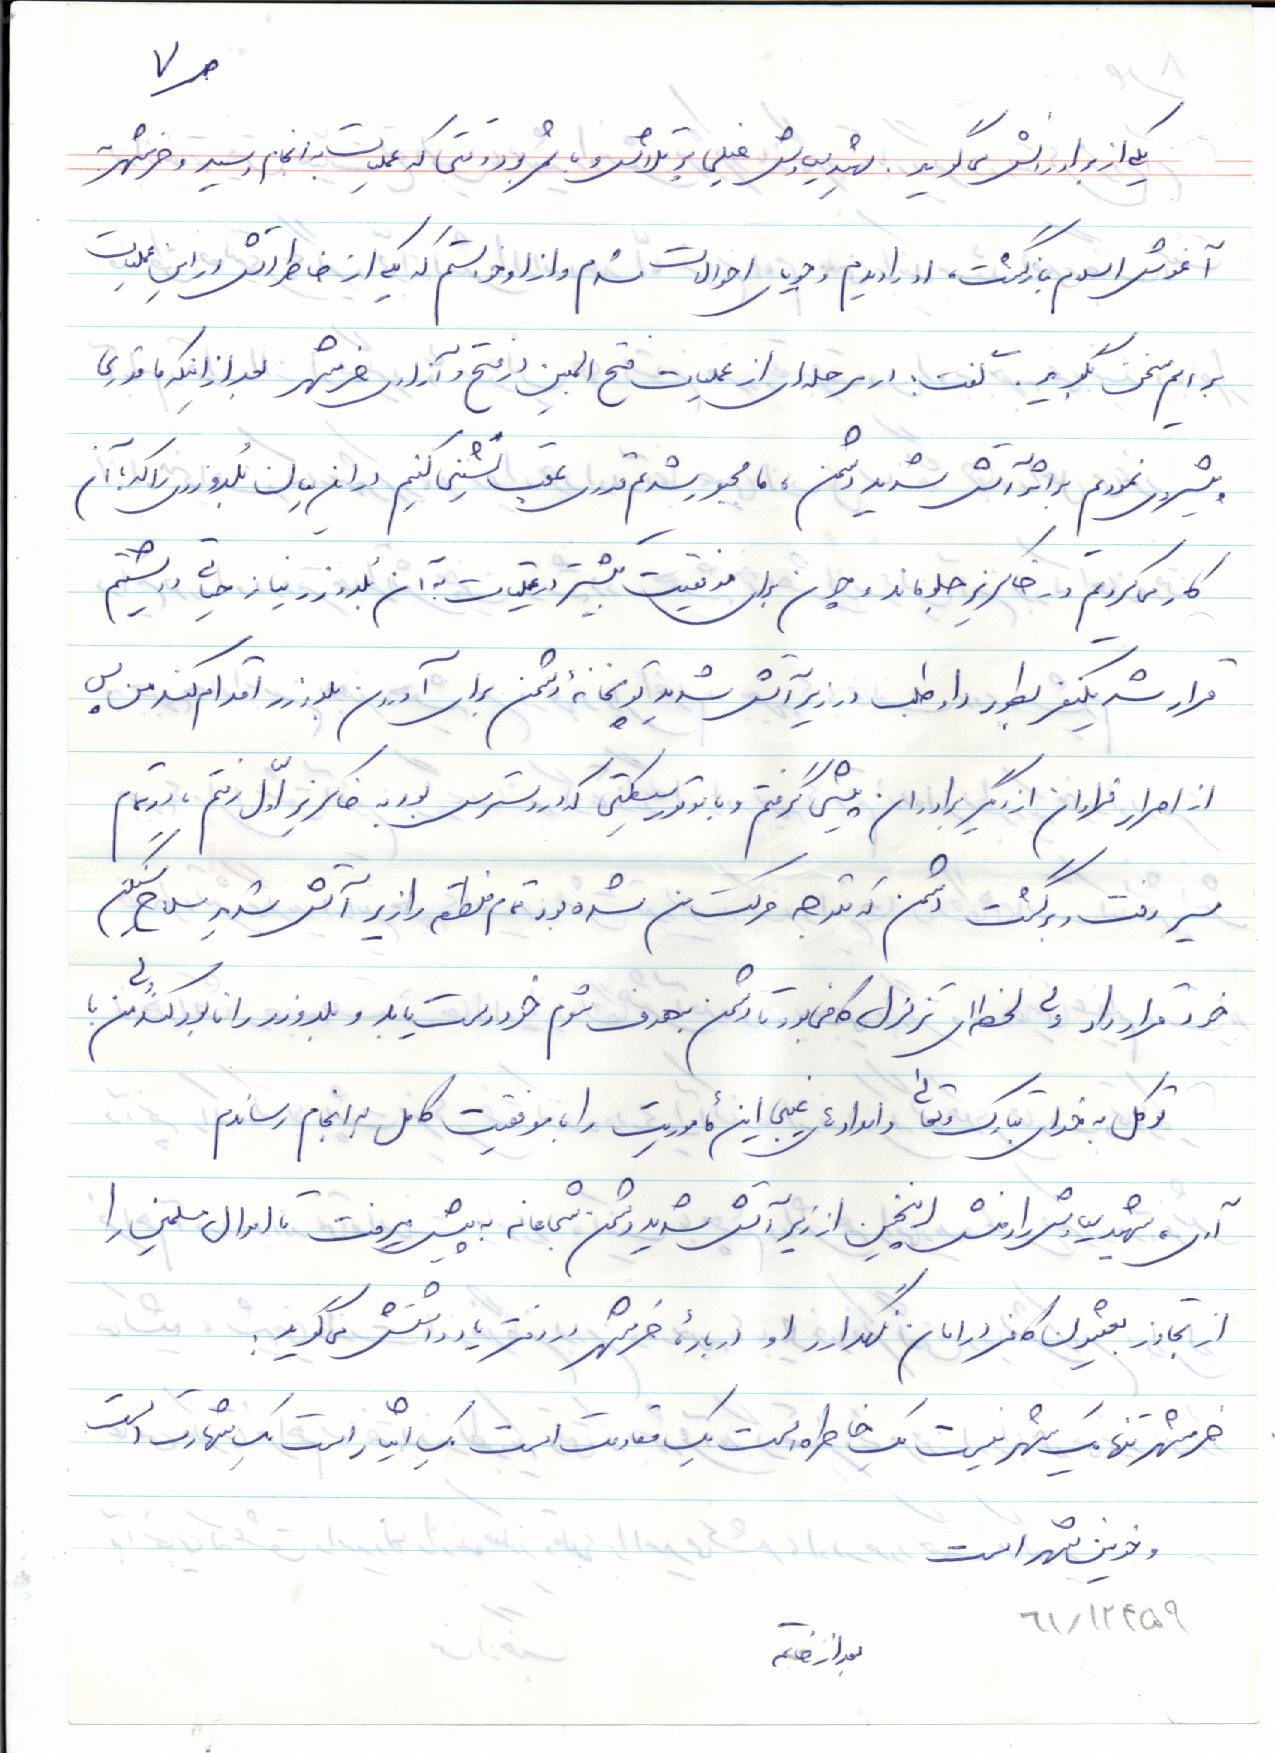 ص ۷
یکی از برادرانش می‌گوید. شهید سیاوش خیلی پر تلاش و با ثمر بود وقتی که عملیات به انجام رسید و خرمشهر به
آغوش اسلام بازگشت، او را دیدم و جویای احوالات شدم و از او خواستم که یکی از خاطراتش در این عملیات
برایم سخن بگوید. گفت: در مرحله‌ای از عملیات فتح المبین در فتح و آزادی خرمشهر بعد از اینکه ما قدری
پیشروی نمودیم بر اثر آتش شدید دشمن، ما مجبور شدیم قدری عقب نشینی کنیم در این میان بُلدوزری را که با آن
کار می‌کردیم در خاکریز جلو ماند و چون برای موفقیت بیشتر در عملیات به آن بُلدوزر نیاز حیاتی داشتیم
قرار شد یکنفر بطور داوطلب در زیر آتش شدید توپخانهٔ دشمن برای آوردن بلدوزر اقدام کند من پس
از اصرار فراوان از دیگر برادران پیشی گرفتم و با موتورسیکلتی که در دسترس بود به خاکریز اوّل رفتم، در تمام
مسیر رفت و برگشت دشمن که متوجه حرکت من شده بود تمام منطقه را زیر آتش شدید سلاح سنگین
خود قرار داد ولی لحظه‌ای تزلزل کافی بود تا دشمن بهدف شوم خود دست یابد و بلدوزر را نابود کند ولی من با
توکل به خدای تبارک و تعالی و امدادهای غیبی این مأموریت را با موفقیت کامل به انجام رساندم
آری، شهید سیاوش راوش اینچنین از زیر آتش شدید دشمن شجاعانه به پیش میرفت تا اموال مسلمین را
از تجاوز بعثیون کافر در امان نگهدارد او دربارهٔ خرمشهر در دفتر یادداشتش می‌گوید:
خرمشهر تنها یک شهر نیست یک خاطره است یک مقاومت است یک ایثار است یک شهادت است
و خونین شهر است
بعد از خاتمه